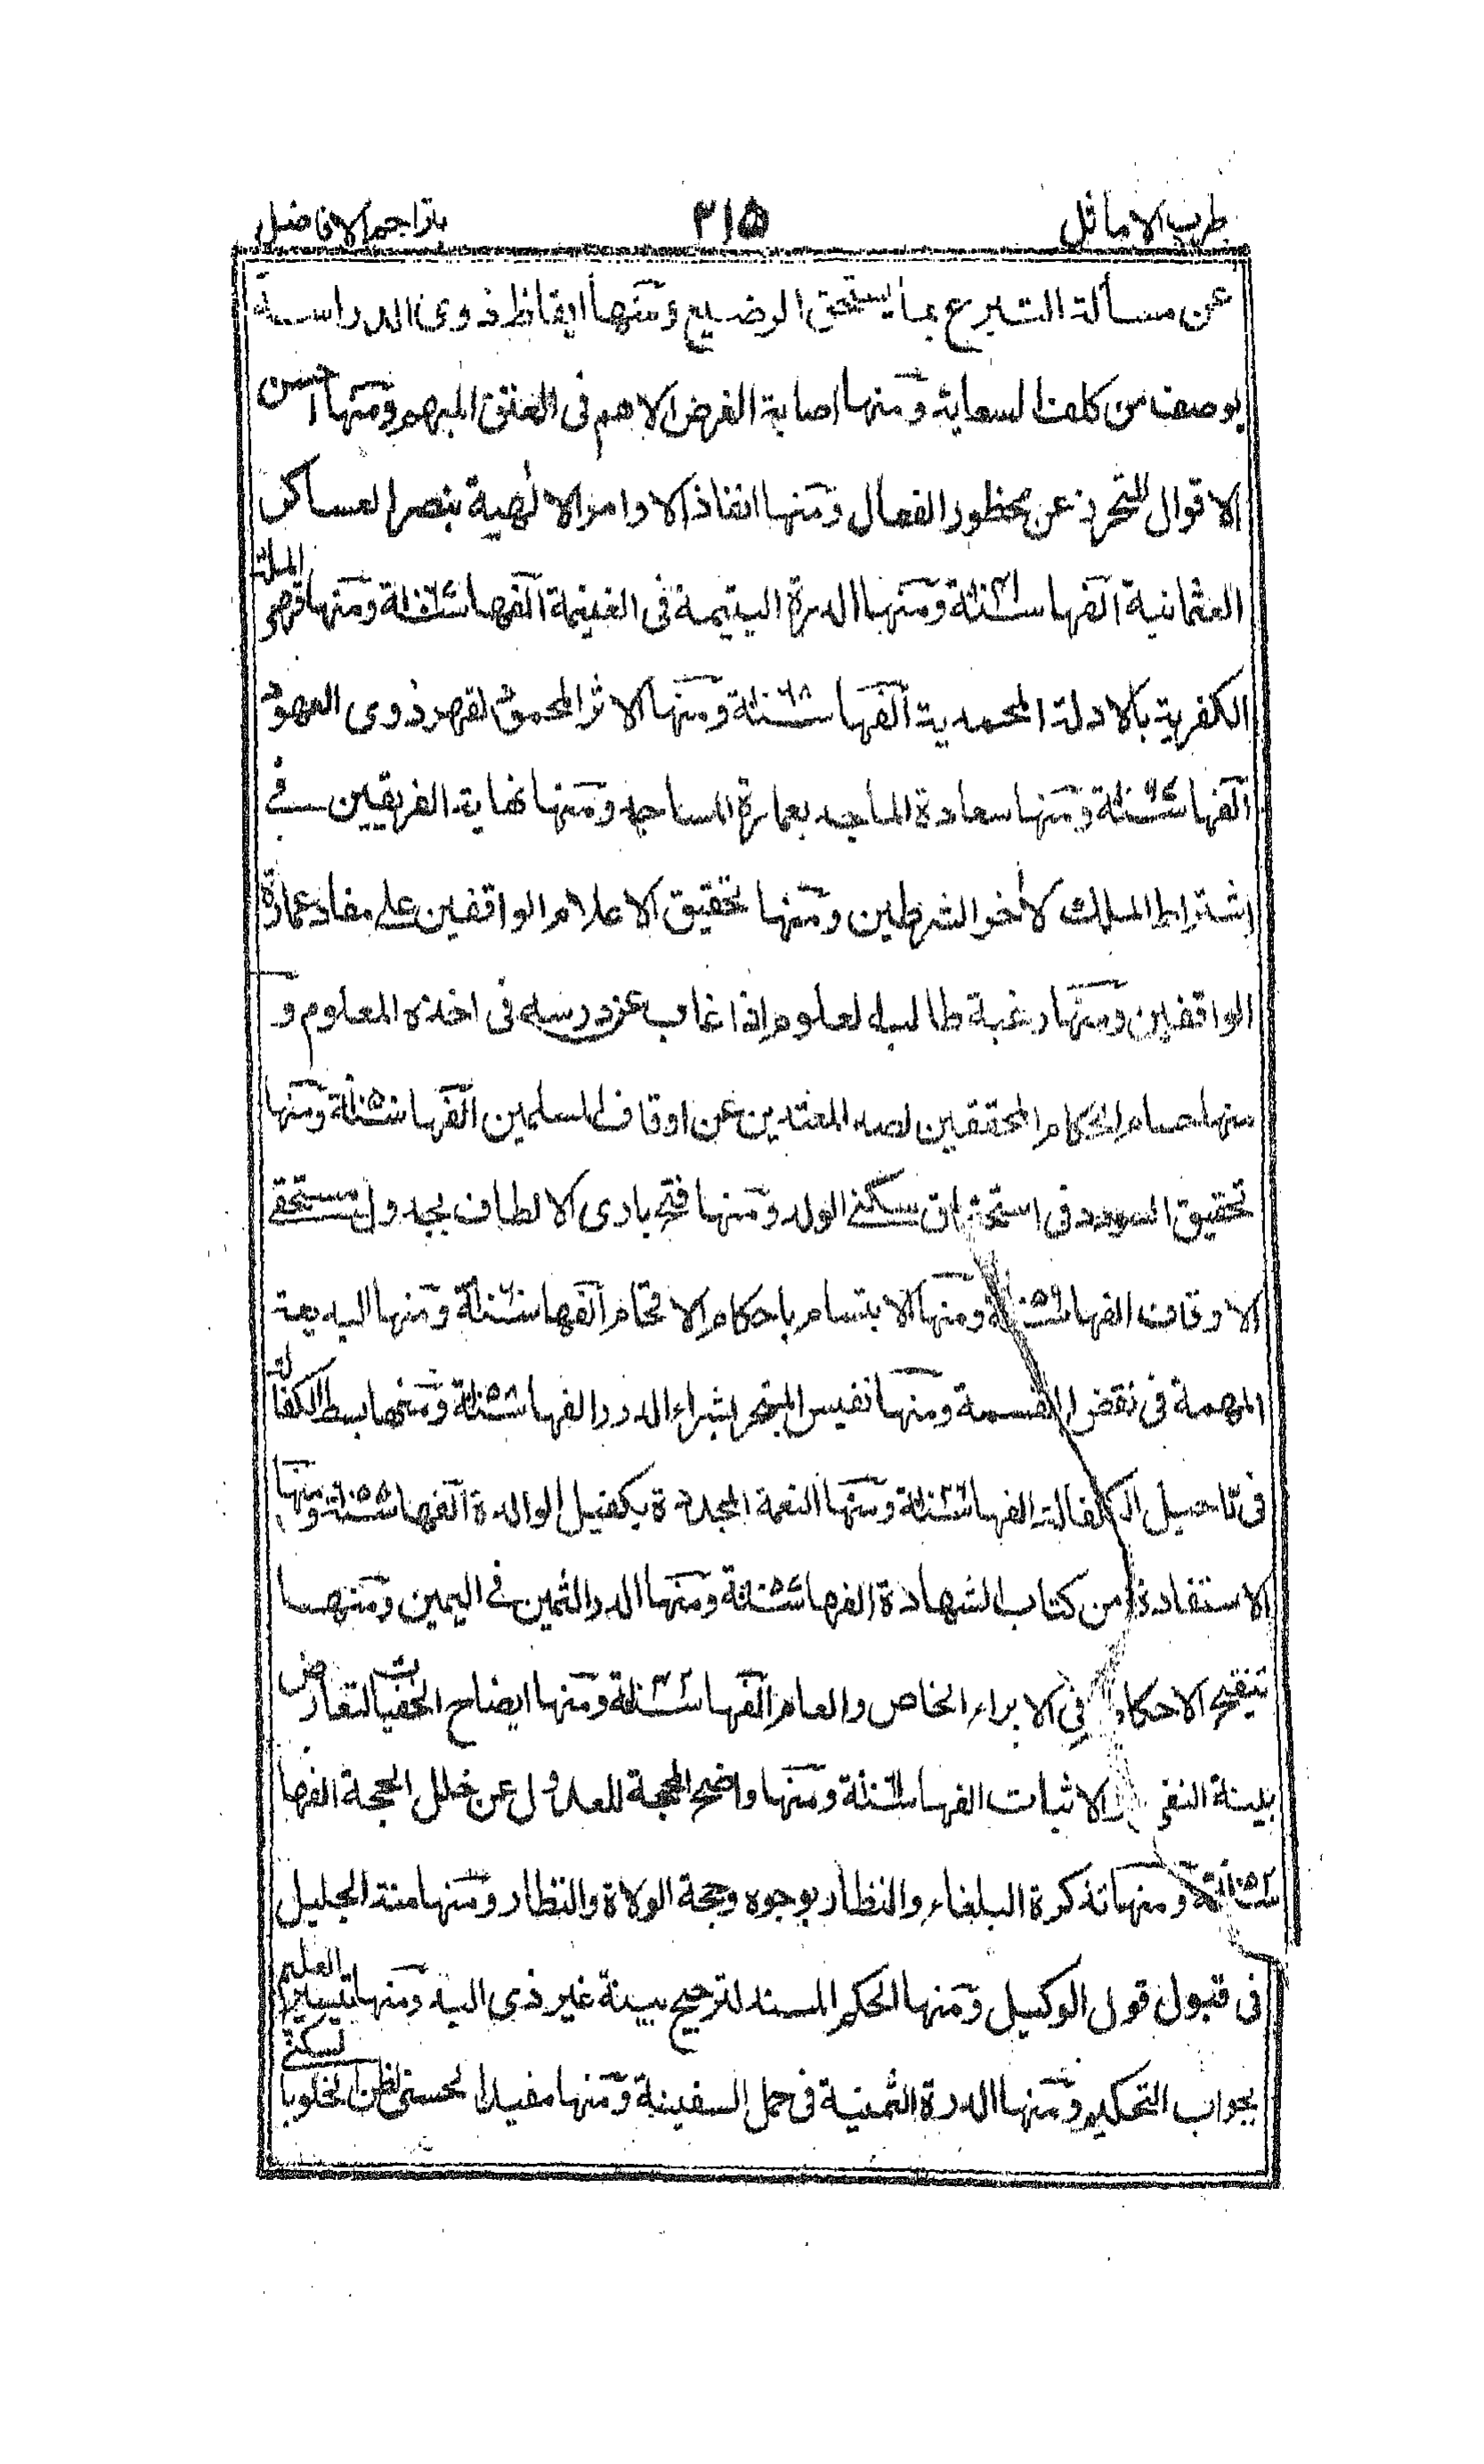 طرب الاماثل ٣١٥ بتراجم الافاضل
عن مسألة التبرع بما يستحق الرضيع ومنها ايقاظ ذوى الدراسة
بوصف من كلف السعاية ومنها اصابة الغرض الاهم فى العتق المبهم ومنها احسن
الاقوال للتحرز عن محظور الفعال ومنها انفاذ الاوامر الالٰهية بنصر العساكر
العثمانية الفها سنة ومنها الدرة اليتيمة فى الغنيمة الفها سنة ومنها قهر الملة
الكفرية بالادلة المحمدية الفها سنة ١٠٦٨ ومنها الاثر المحمود لقهر ذوى العهود
الفها سنة ومنها سعادة الماجد بعمارة المساجد ومنها نهاية الفريقين فى
اشتراط الملك لاخر الشرطين ومنها تحقيق الاعلام الواقفين على مفاد عمارة
الواقفين ومنها رغبة طالب العلوم اذا غاب عن درسه فى اخذه المعلوم و
منها حسام الحكام المحققين لصد المعتدين عن اوقاف المسلمين الفها سنة ١٠٥٠ ومنها
تحقيق السودد فى استحقاق سكنى الولد ومنها فتح بارى الالطاف بجدول مستحقى
الاوقاف الفها سنة ١٠٥٩ ومنها الابتسام باحكام الافحام الفها سنة ١٠٦٠ ومنها البديعة
المهمة فى نقض القسمة ومنها نفيس المتجر بشراء الدرر الفها سنة ومنها بسط الكفالة
فى تاجيل الكفالة الفها سنة ومنها النعمة المجددة بكفيل الوالدة الفها سنة ومنها
الاستفادة من كتاب الشهادة الفها سنة ومنها الدر الثمين فى اليمين ومنها
تنقيح الاحكام فى الابراء الخاص والعام الفها سنة ومنها ايضاح الخفيات لتعارض
بينة النفى والاثبات الفها سنة ومنها واضح المحجة للعدول عن خلل الحجة الفها
سنة ١٠٥٢ ومنها تذكرة البلغاء والنظار بوجوه وحجة الولاة والنظار ومنها منة الجليل
فى قبول قول الوكيل ومنها الحكم المسند لترجيح بينة غير ذى اليد ومنها تيسير العليم
بجواب التحكيم ومنها الدرة الثمنية فى حمل السفينة ومنها مفيدة الحسنى لظن الخلو بالسكنى